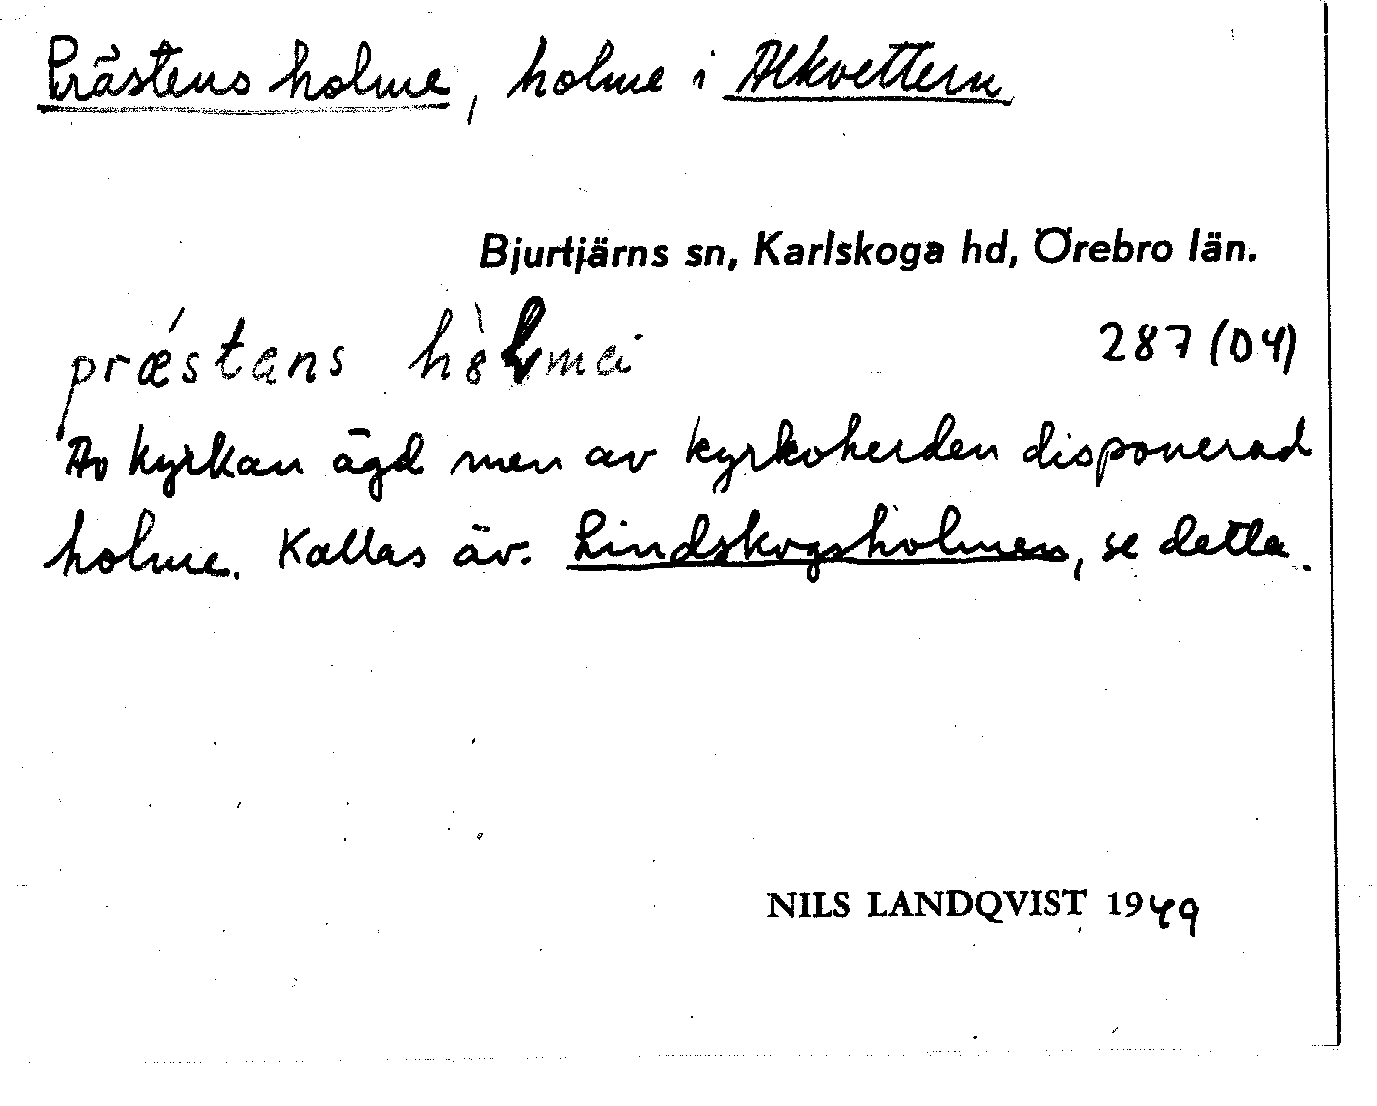 Prästens holme, holme i Alkvettern
Bjurtjärns sn, Karlskoga hd, Örebro län.
prǽstans 287 (04)
Av kyrkan ägd men av kyrkoherden disponerad
holme. Kallas äv. Lindskogsholmen, se detta.
NILS LANDQVIST 1949